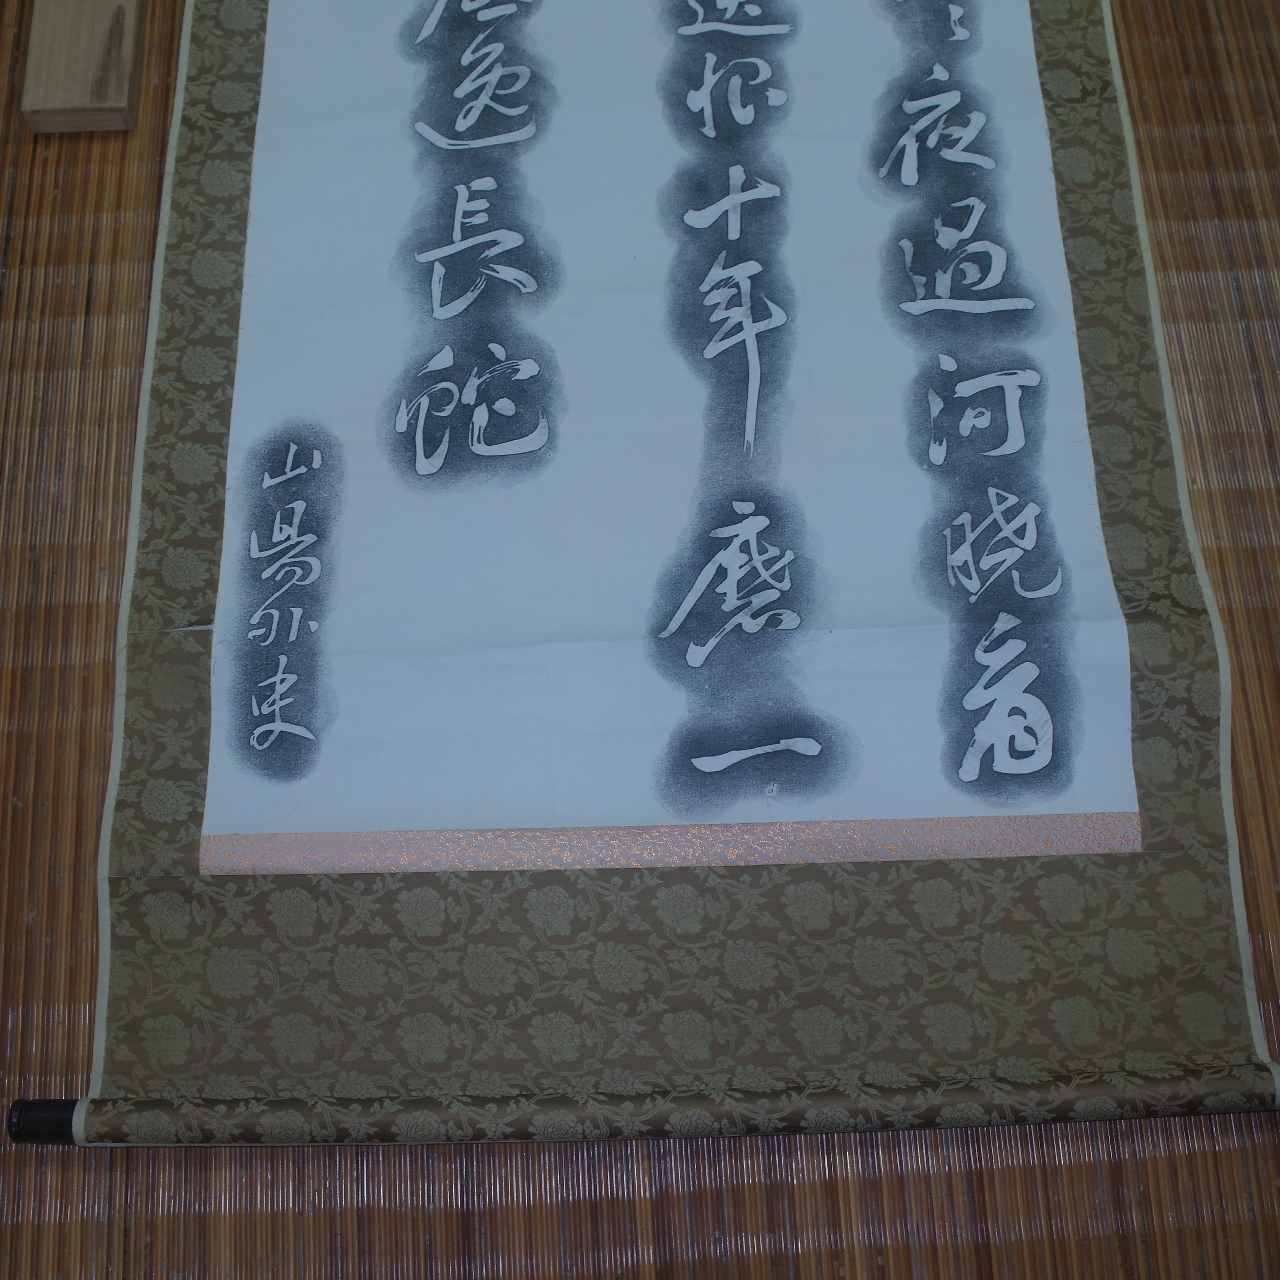 夜過河曉看
恨十年磨一
逸長蛇
山陽外史